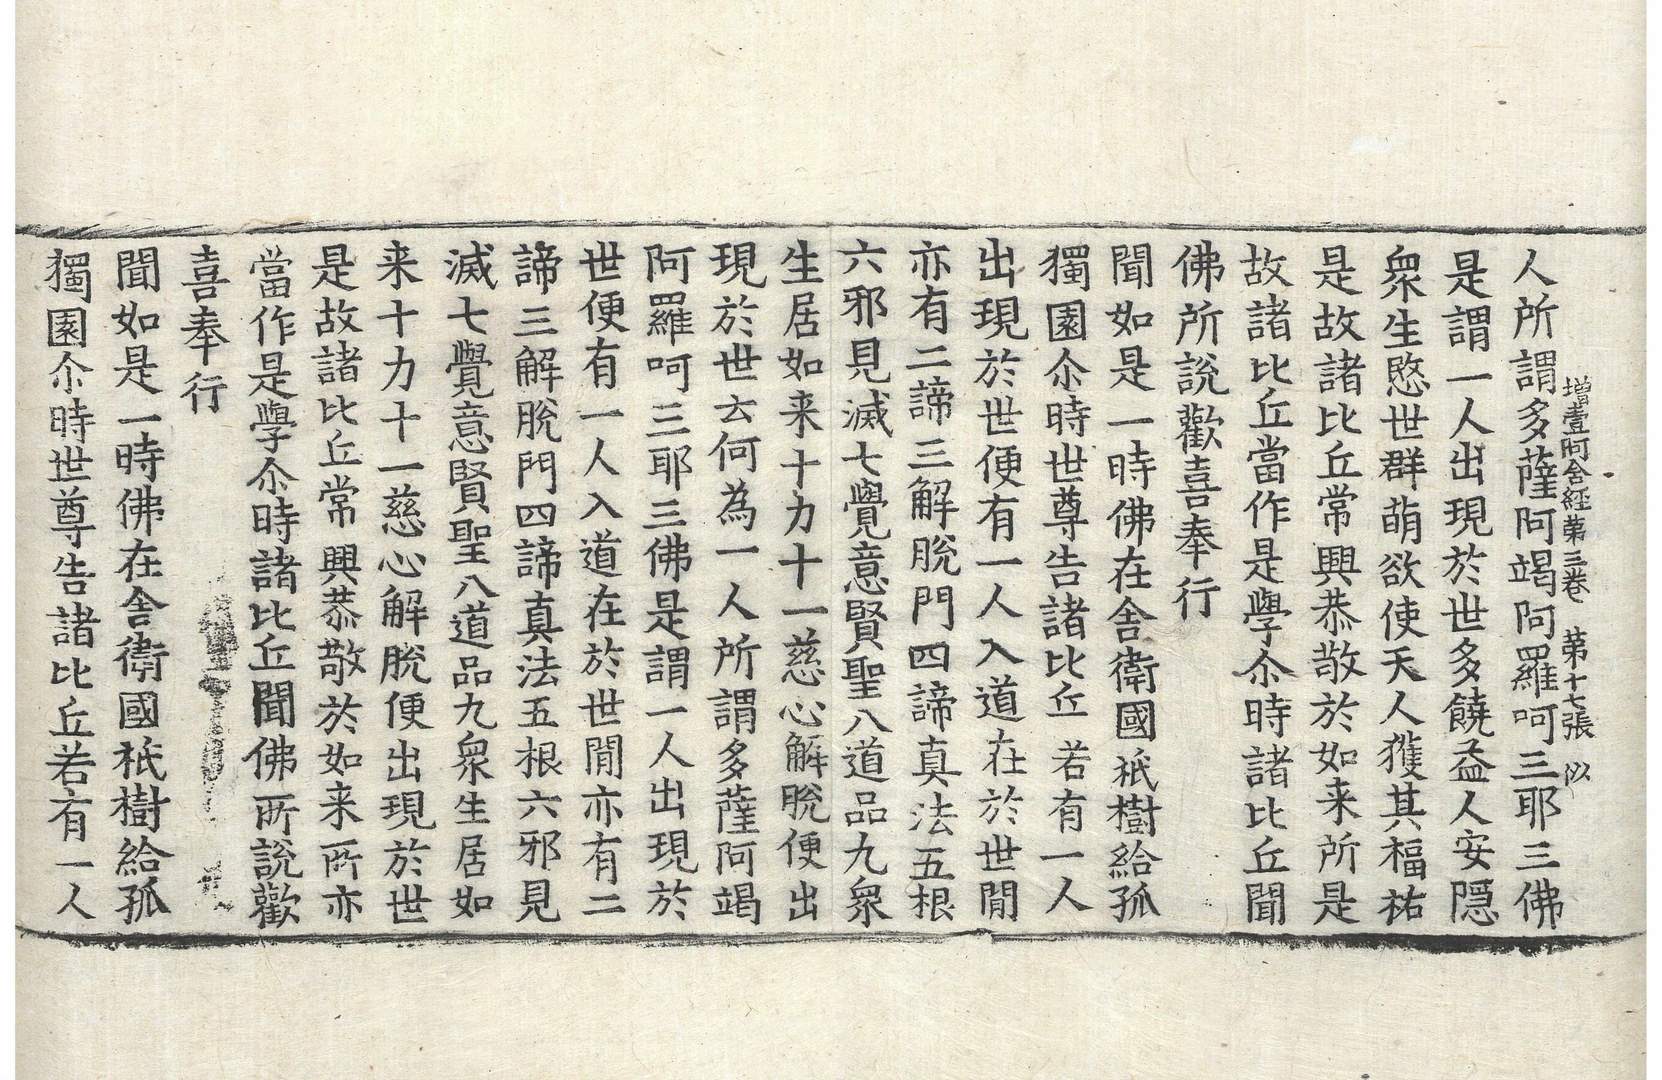 增壹阿含經第三卷 第十七張 似
人所謂多薩阿竭阿羅呵三耶三佛
是謂一人出現於世多饒益人安隱
衆生愍世群萌欲使天人獲其福祐
是故諸比丘常興恭敬於如来所是
故諸比丘當作是學尒時諸比丘聞
佛所説歡喜奉行
聞如是一時佛在舍衛國祇樹給孤
獨園尒時世尊告諸比丘若有一人
出現於世便有一人入道在於世間
亦有二諦三解脫門四諦真法五根
六邪見滅七覺意賢聖八道品九衆
生居如来十力十一慈心解脫便出
現於世云何為一人所謂多薩阿竭
阿羅呵三耶三佛是謂一人出現於
世便有一人入道在於世間亦有二
諦三解脫門四諦真法五根六邪見
滅七覺意賢聖八道品九衆生居如
来十力十一慈心解脫便出現於世
是故諸比丘常興恭敬於如来所亦
當作是學尒時諸比丘聞佛所説歡
喜奉行
聞如是一時佛在舍衛國祇樹給孤
獨園尒時世尊告諸比丘若有一人